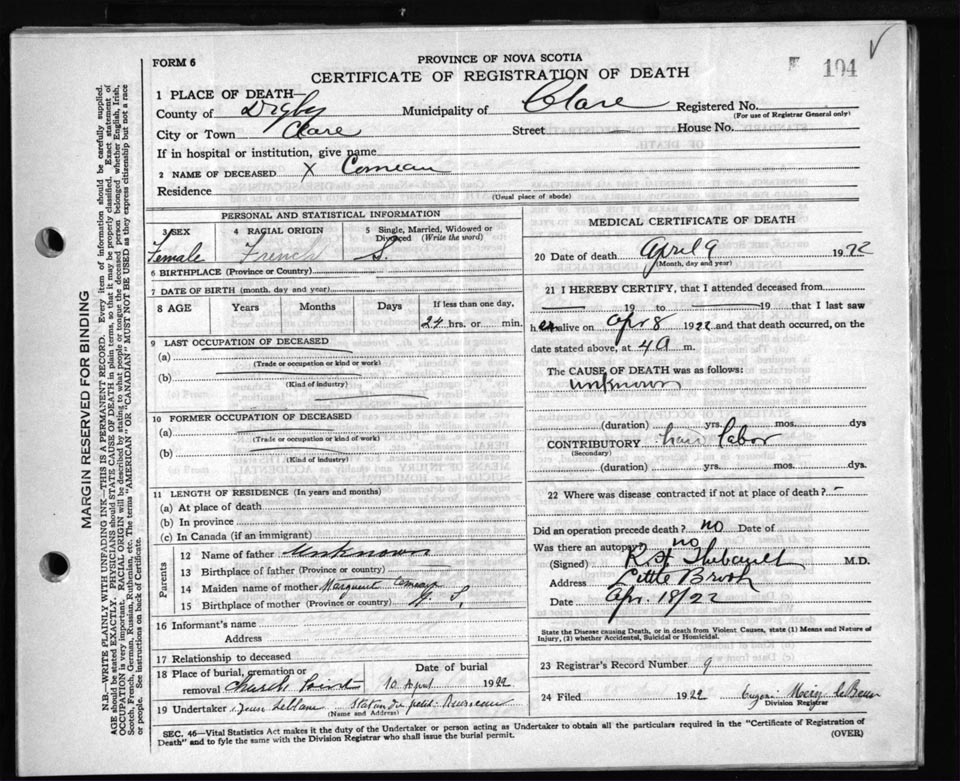 FORM 6
PROVINCE OF NOVA SCOTIA
CERTIFICATE OF REGISTRATION OF DEATH
194
1 PLACE OF DEATH
County of Digby Municipality of Clare Registered No.
(For use of Registrar General only)
City or Town Clare Street House No.
If in hospital or institution, give name
2 NAME OF DECEASED X Comeau
Residence
(Usual place of abode)
PERSONAL AND STATISTICAL INFORMATION
3 SEX 4 RACIAL ORIGIN 5 Single, Married, Widowed or Divorced (Write the word)
Female French S.
6 BIRTHPLACE (Province or Country)
7 DATE OF BIRTH (month, day and year)
8 AGE Years Months Days If less than one day,
24 hrs. or min.
9 LAST OCCUPATION OF DECEASED
(a)
(Trade or occupation or kind or work)
(b)
(Kind of industry)
10 FORMER OCCUPATION OF DECEASED
(a)
(Trade or occupation or kind of work)
(b)
(Kind of industry)
11 LENGTH OF RESIDENCE (In years and months)
(a) At place of death
(b) In province
(c) In Canada (if an immigrant)
Parents
12 Name of father Unknown
13 Birthplace of father (Province or country)
14 Maiden name of mother Comeau
15 Birthplace of mother (Province or country) N. S.
16 Informant's name
Address
17 Relationship to deceased
18 Place of burial, cremation or removal Church Point Date of burial 10 April 1922
19 Undertaker
(Name and Address)
MEDICAL CERTIFICATE OF DEATH
20 Date of death April 9 1922
(Month, day and year)
21 I HEREBY CERTIFY, that I attended deceased from
19 to 19 that I last saw
her alive on Apr 8 1922 and that death occurred, on the
date stated above, at 4 a m.
The CAUSE OF DEATH was as follows:
unknown
(duration) yrs. mos. dys
CONTRIBUTORY hard labor
(Secondary)
(duration) yrs. mos. dys.
22 Where was disease contracted if not at place of death? -
Did an operation precede death? no Date of
Was there an autopsy? no
(Signed) Thebault M.D.
Address Little Brook
Date Apr. 18/22
State the Disease causing Death, or in death from Violent Causes, state (1) Means and Nature of Injury, (2) whether Accidental, Suicidal or Homicidal.
23 Registrar's Record Number 9
24 Filed 1922
Division Registrar
SEC. 46—Vital Statistics Act makes it the duty of the Undertaker or person acting as Undertaker to obtain all the particulars required in the "Certificate of Registration of
Death" and to fyle the same with the Division Registrar who shall issue the burial permit. (OVER)
MARGIN RESERVED FOR BINDING
N.B.—WRITE PLAINLY WITH UNFADING INK—THIS IS A PERMANENT RECORD. Every item of information should be carefully supplied.
AGE should be stated EXACTLY. PHYSICIANS should STATE CAUSE OF DEATH in plain terms, so that it may be properly classified. Exact statement of
OCCUPATION is very important. RACIAL ORIGIN will be described by stating to what people or tongue the deceased person belonged whether English, Irish,
Scotch, French, German, Russian, Ruthenian, etc. The terms "AMERICAN" OR "CANADIAN" MUST NOT BE USED as they express citizenship but not a race
or people. See instructions on back of Certificate.